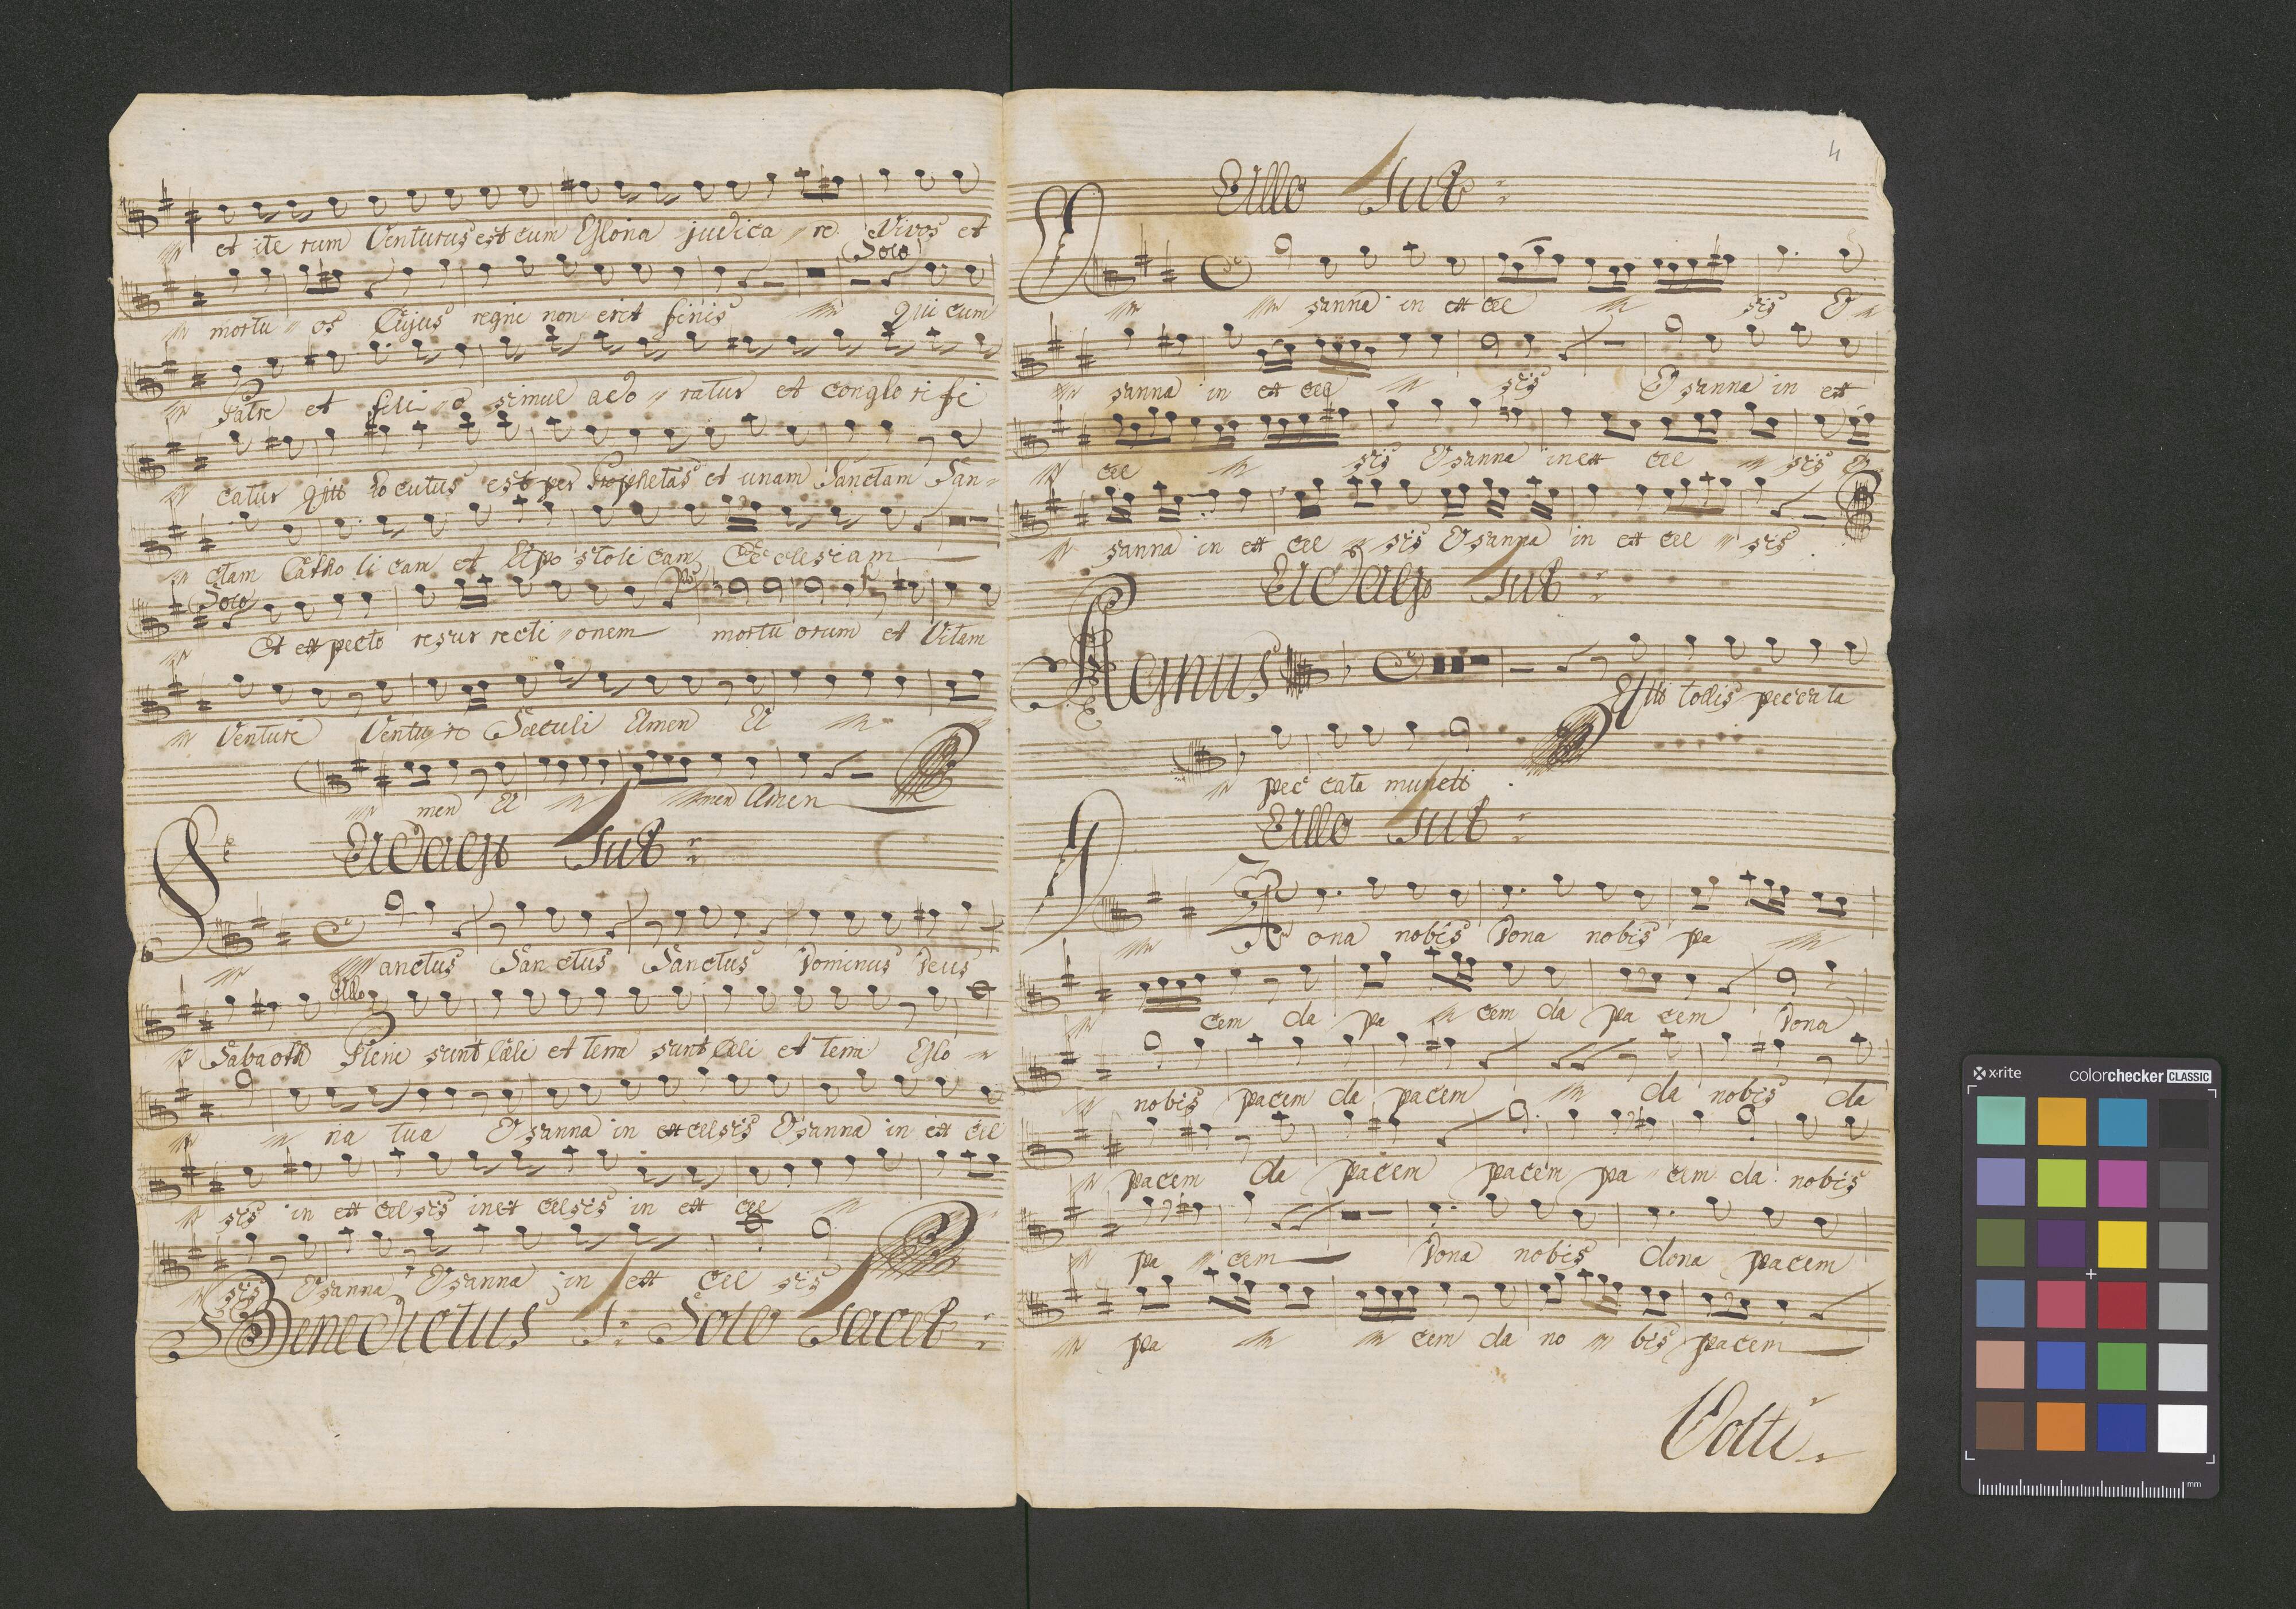 et ite rum Venturus est cum Gloria judica re Vivos et
Solo
mortu os Cujus regni non erit finis Qui cum
Patre et fili o simul ado ratur et conglo ri fi
catur qui locutus est per Prophetas et unam Sanctam San-
ctam Catho li cam et Apo stoli cam Ecclesiam
Solo
Et ex pecto resur recti onem mortu orum et Vitam
Venturi Ventu ri Sæculi Amen A
men A men Amen
Adagio Sub:
Sanctus Sanctus Sanctus Dominus Deus
Allo
Sabaoth Pleni sunt Cæli et terra sunt Cæli et terra Glo
ria tua Osanna in excelsis Osanna in ex cel
sis in ex cel sis in ex celsis in ex cel
sis Osanna Osanna in ex cel sis
Benedictus S: Solo Tacet:
4
Allo Sub:
O sanna in ex cel sis O
sanna in ex cel sis O sanna in ex
cel sis O sanna in ex cel sis O
sanna in ex cel sis O sanna in ex cel sis
Adagio Sub:
Agnus
Qui tollis peccata
pec cata mundi
Allo Sub:
Dona nobis Dona nobis pa
cem da pa cem da pa cem Dona
nobis pacem da pacem da nobis da
pacem da pacem pacem pa cem da nobis
pa cem Dona nobis dona pacem
pa cem da no bis pacem
Volti.
x-rite colorchecker CLASSIC
mm